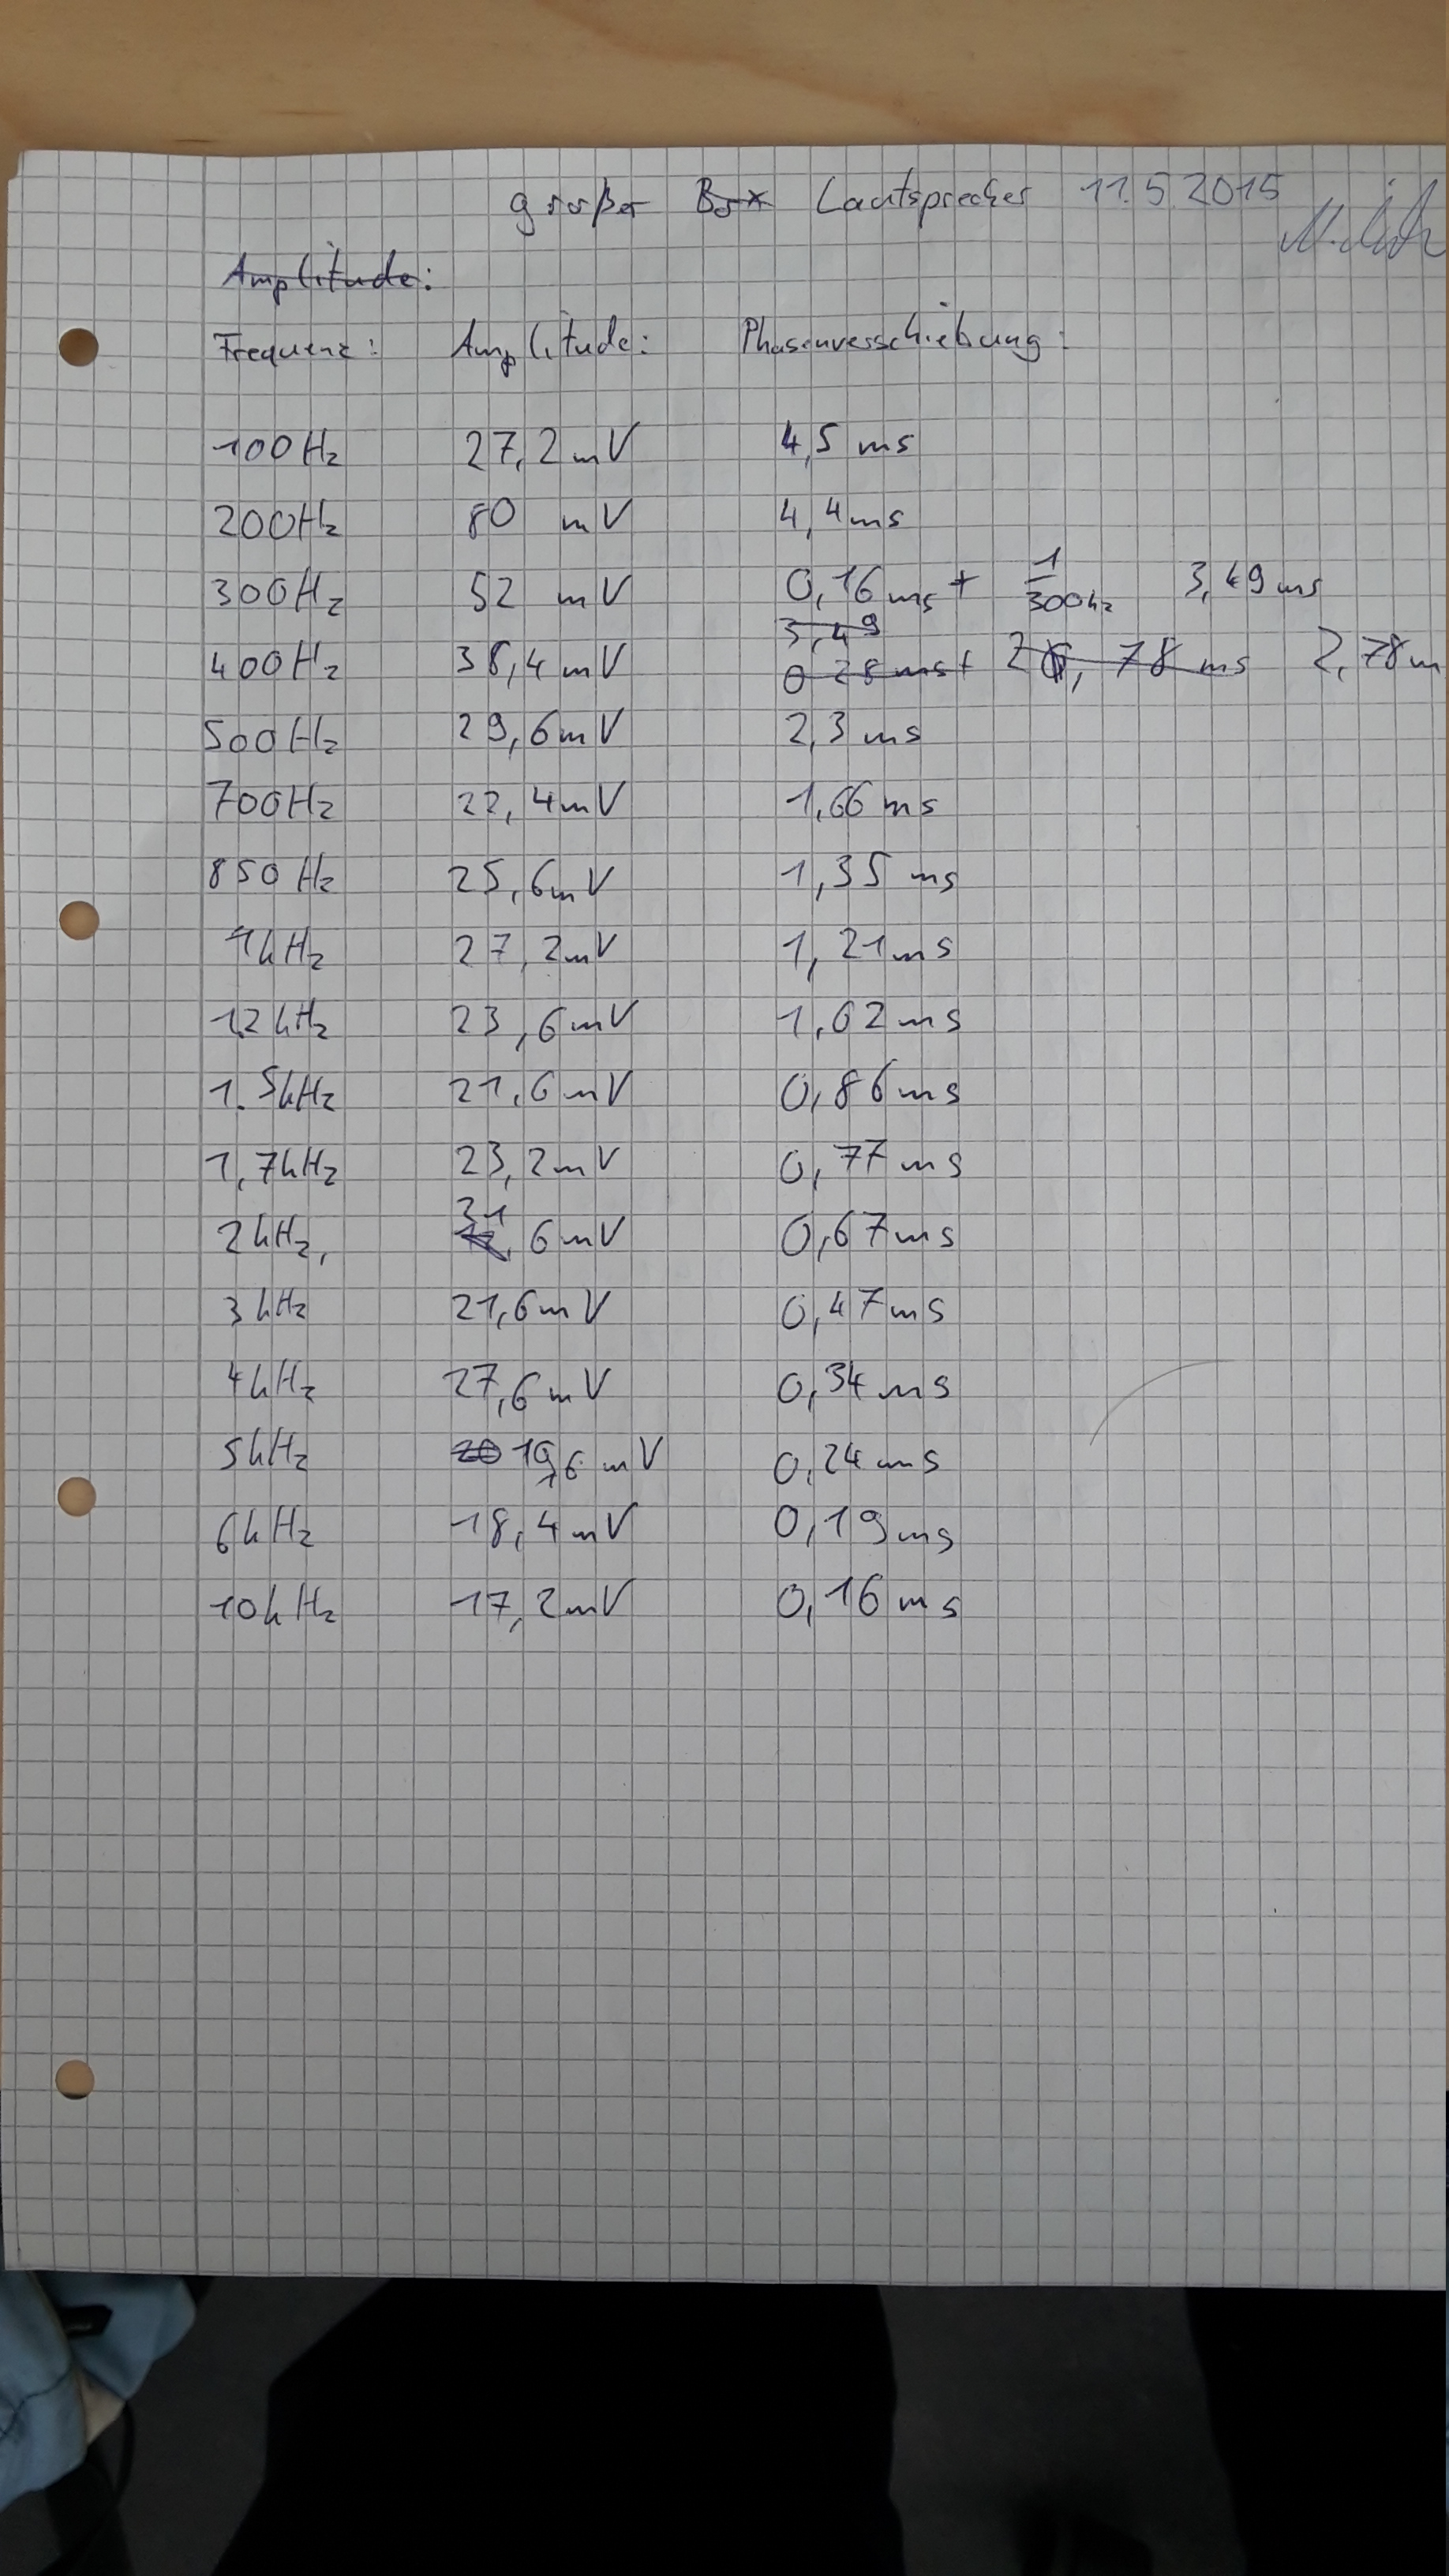 großer Box Lautsprecher 11.5.2015
Amplitude:
Frequenz: Amplitude: Phasenverschiebung:
100Hz 27,2mV 4,5 ms
200Hz 80 mV 4,4ms
300Hz 52 mV 0,16ms + 1/300Hz 3,49ms
3,49
400Hz 36,4mV 0 28 ms+ 2,78 ms 2,78m
500Hz 29,6mV 2,3 ms
700Hz 22,4mV 1,66 ms
850 Hz 25,6mV 1,35 ms
1kHz 27,2mV 1,21ms
1,2kHz 23,6mV 1,02ms
1.5kHz 21,6mV 0,86ms
1,7kHz 23,2mV 0,77ms
2kHz, 31,6mV 0,67ms
3kHz 21,6mV 0,47ms
4kHz 27,6mV 0,34ms
5kHz 20 19,6 mV 0,24ms
6kHz 18,4mV 0,19ms
10kHz 17,2mV 0,16ms